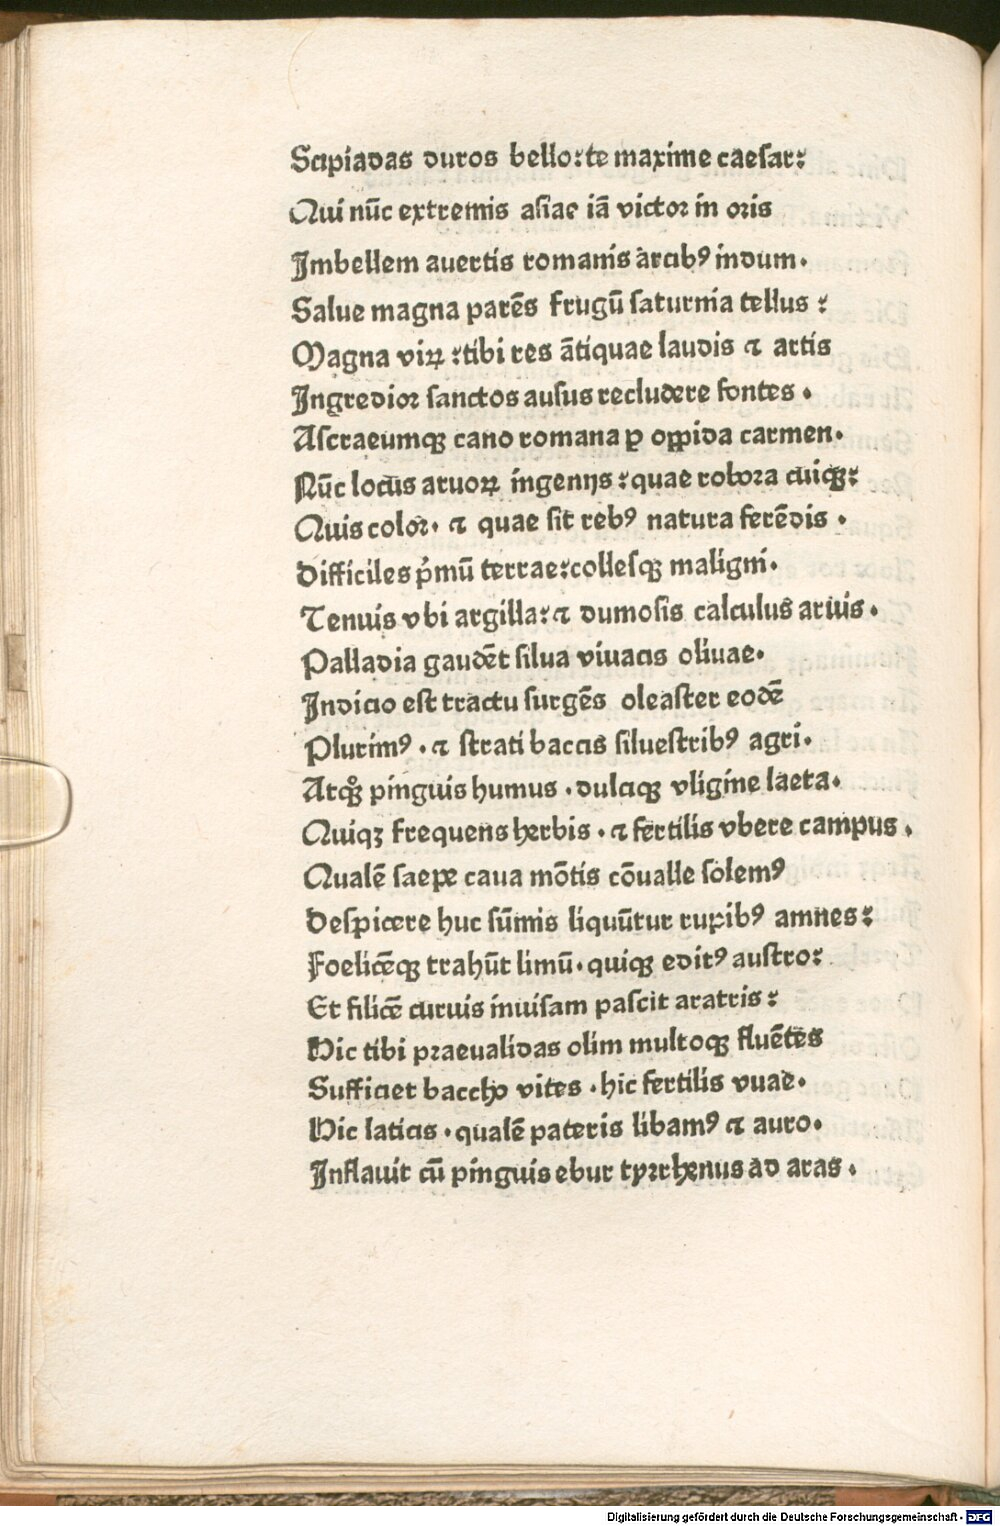 Scipiadas duros bello:te maxime caesar:
Qui nūc extremis asiae iā victor in oris
Imbellem auertis romanis arcibꝰ indum.
Salue magna parēs frugū saturnia tellus :
Magna viꝝ :tibi res ātiquae laudis ⁊ artis
Ingredior sanctos ausus recludere fontes .
Ascraeumqꝫ cano romana ꝑ oꝑpida carmen.
Nūc locus aruoꝝ ingenijs :quae robora cuiqꝫ:
Quis color. ⁊ quae sit rebꝰ natura ferēdis .
Difficiles p̄mū terrae:collesqꝫ maligni.
Tenuis vbi argilla:⁊ dumosis calculus aruis .
Palladia gaudēt silua viuacis oliuae.
Indicio est tractu surgēs oleaster eodē
Plurimꝰ . ⁊ strati baccis siluestribꝰ agri.
Atqꝫ pinguis humus . dulciqꝫ vligine laeta.
Quiqꝫ frequens herbis . ⁊ fertilis vbere campus .
Qualē saepe caua mōtis cōualle solemꝰ
Despicere huc sūmis liquūtur rupibꝰ amnes:
Foelicēqꝫ trahūt limū. quiqꝫ editꝰ austro:
Et filicē curuis inuisam pascit aratris :
Hic tibi praeualidas olim multoqꝫ fluētes
Sufficiet baccho vites . hic fertilis vuae.
Hic laticis . qualē pateris libamꝰ ⁊ auro.
Inflauit cū pinguis ebur tyrrhenus ad aras .
Digitalisierung gefördert durch die Deutsche Forschungsgemeinschaft - DFG